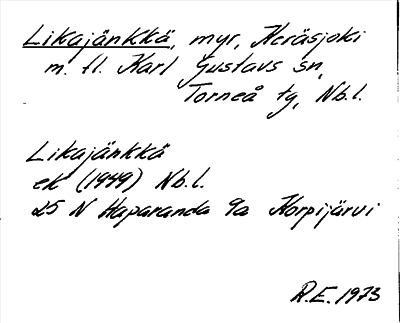 Likajänkkä, myr, Keräsjoki
m. fl. Karl Gustavs sn,
Torneå tg, Nb.l.
Likajänkkä
ek (1949) Nb.l.
25 N Haparanda 9a Korpijärvi
R.E. 1973